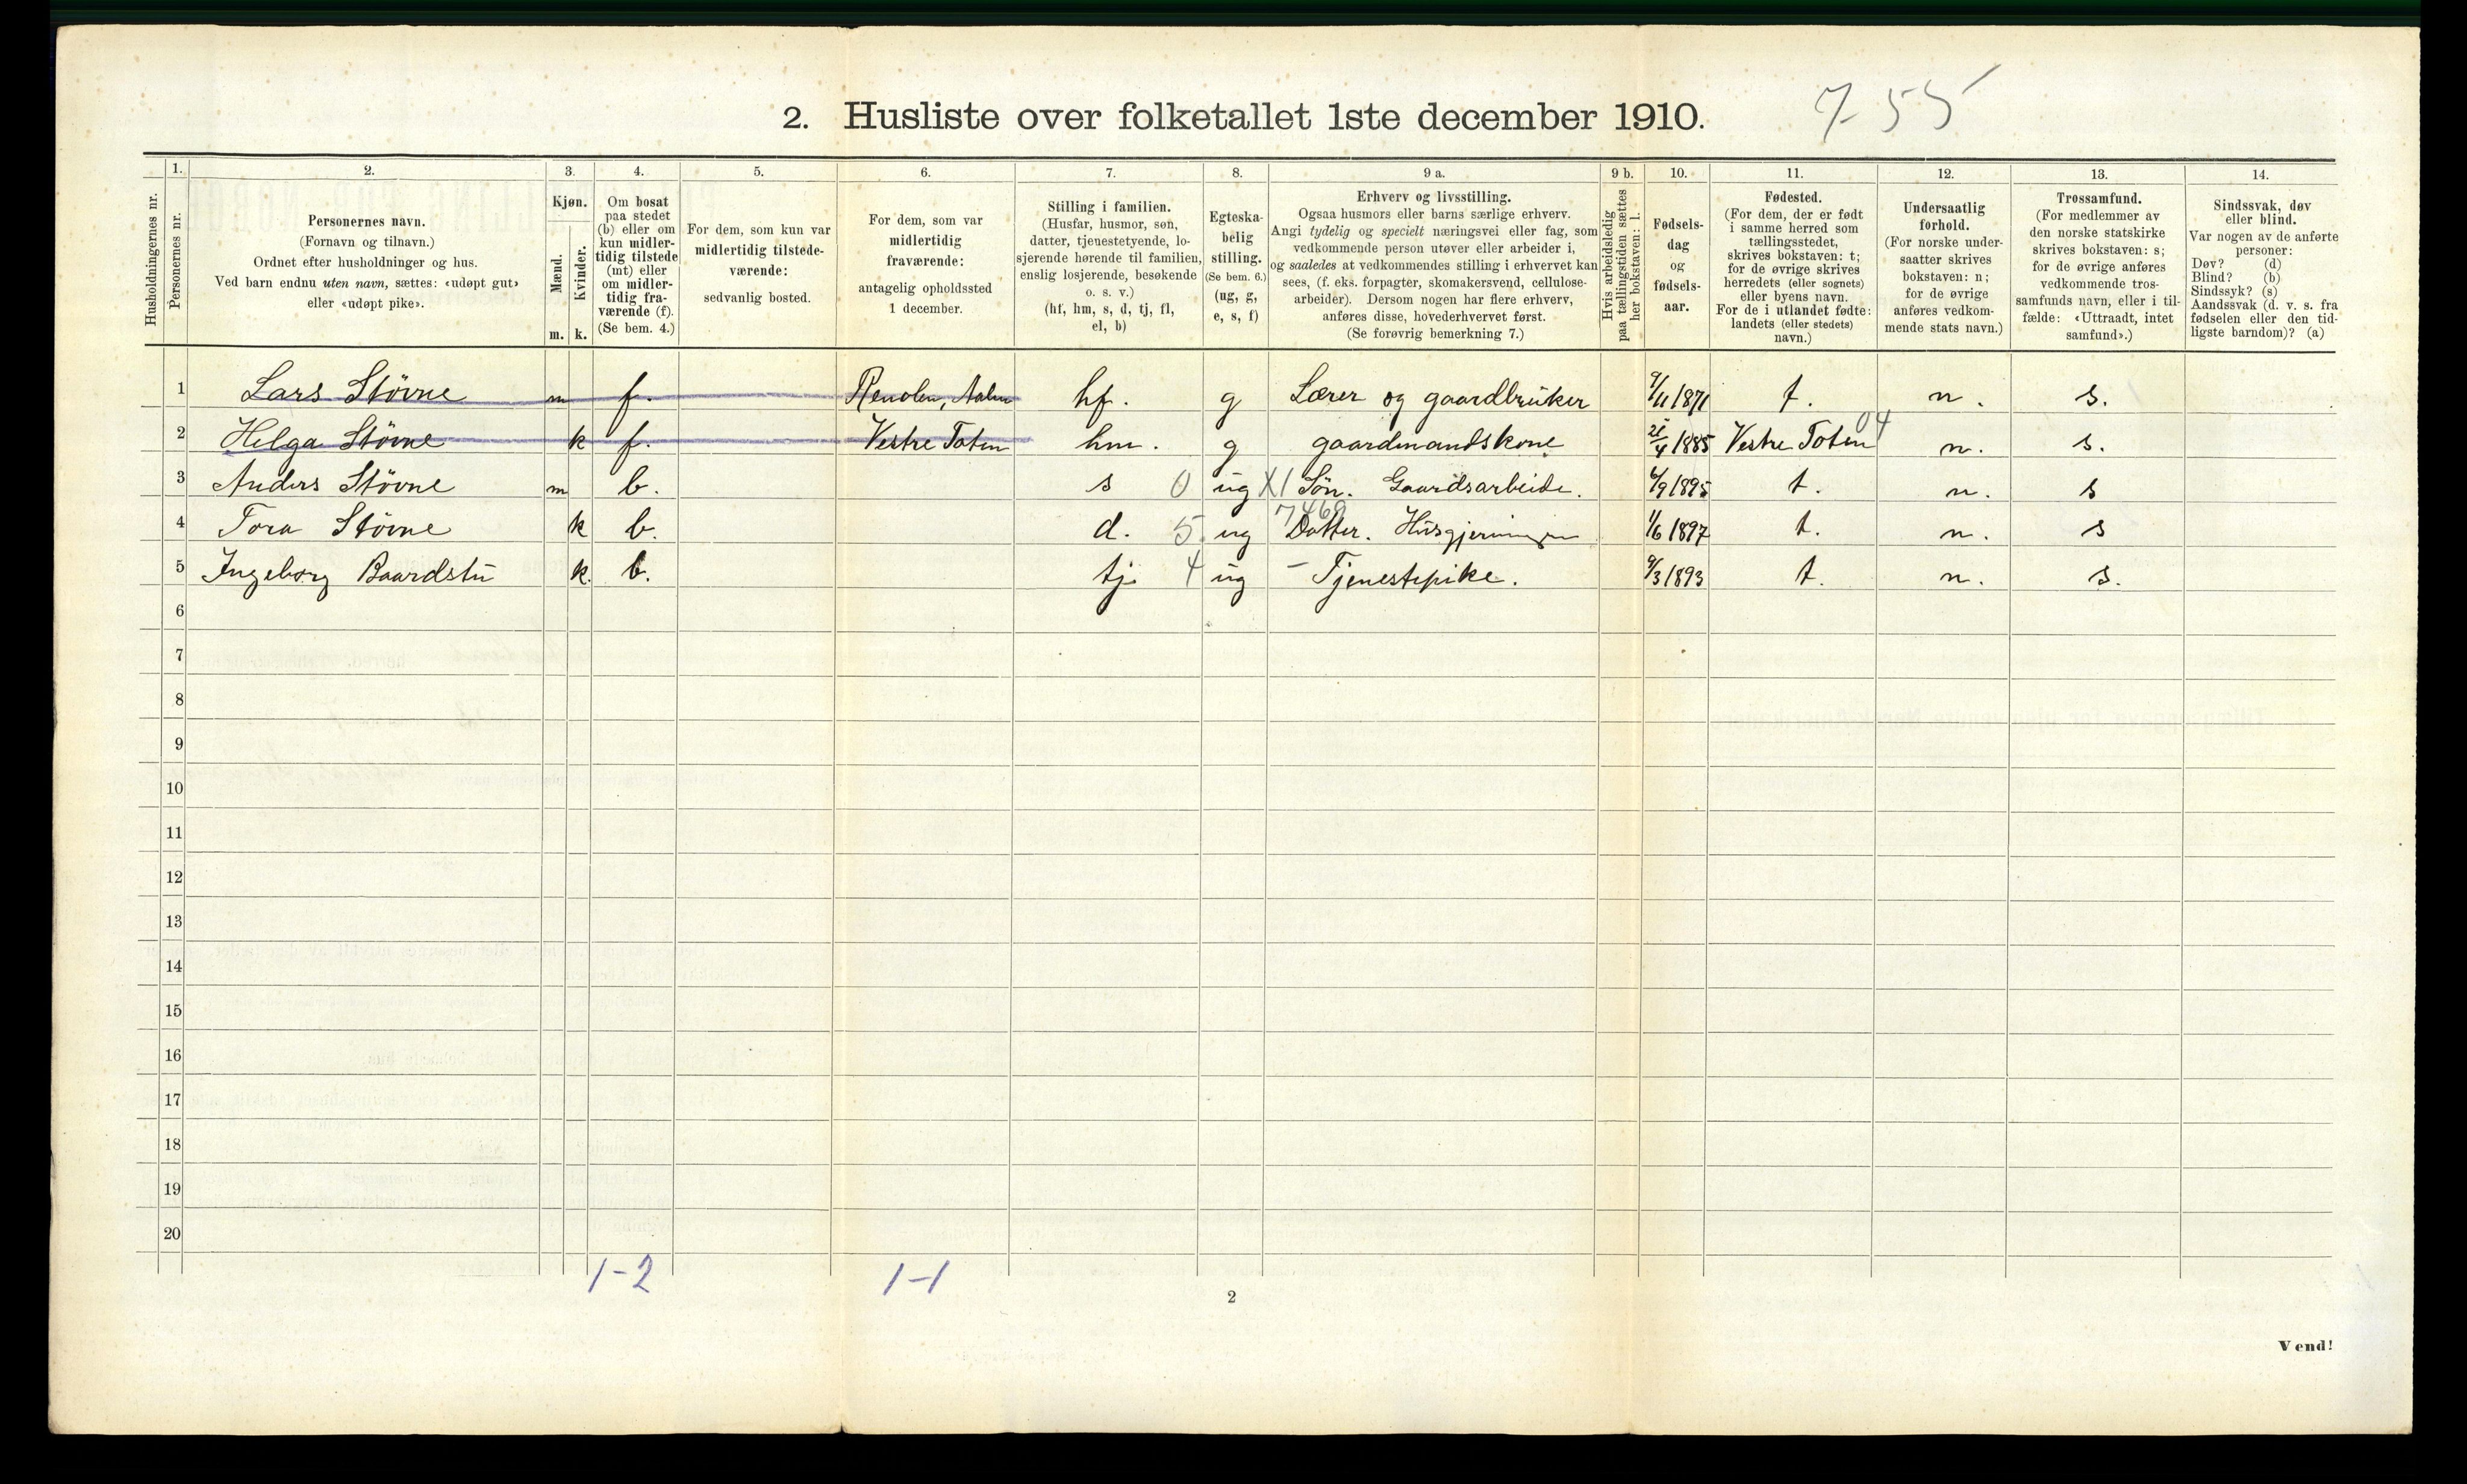 2. Husliste over folketallet 1ste december 1910. 755
1. 2. 3. 4. 5. 6. 7. 8. 9 a. 9 b. 10. 11. 12. 13. 14.
Husholdningernes nr.
Personernes nr.
Personernes navn.
(Fornavn og tilnavn.)
Ordnet efter husholdninger og hus.
Ved barn endnu uten navn, sættes: «udøpt gut»
eller «udøpt pike».
Kjøn.
Mænd.
Kvinder.
m. k.
Om bosat
paa stedet
(b) eller om
kun midler-
tidig tilstede
(mt) eller
om midler-
tidig fra-
værende (f).
(Se bem. 4.)
For dem, som kun var
midlertidig tilstede-
værende:
sedvanlig bosted.
For dem, som var
midlertidig
fraværende:
antagelig opholdssted
1 december.
Stilling i familien.
(Husfar, husmor, søn,
datter, tjenestetyende, lo-
sjerende hørende til familien,
enslig losjerende, besøkende
o. s. v.)
(hf, hm, s, d, tj, fl,
el, b)
Egteska-
belig
stilling.
(Se bem. 6.)
(ug, g,
e, s, f)
Erhverv og livsstilling.
Ogsaa husmors eller barns særlige erhverv.
Angi tydelig og specielt næringsvei eller fag, som
vedkommende person utøver eller arbeider i,
og saaledes at vedkommendes stilling i erhvervet kan
sees, (f. eks. forpagter, skomakersvend, cellulose-
arbeider). Dersom nogen har flere erhverv,
anføres disse, hovederhvervet først.
(Se forøvrig bemerkning 7.)
Hvis arbeidsledig
paa tællingstiden sættes
her bokstaven: l.
Fødsels-
dag
og
fødsels-
aar.
Fødested.
(For dem, der er født
i samme herred som
tællingsstedet,
skrives bokstaven: t;
for de øvrige skrives
herredets (eller sognets)
eller byens navn.
For de i utlandet fødte:
landets (eller stedets)
navn.)
Undersaatlig
forhold.
(For norske under-
saatter skrives
bokstaven: n;
for de øvrige
anføres vedkom-
mende stats navn.)
Trossamfund.
(For medlemmer av
den norske statskirke
skrives bokstaven: s;
for de øvrige anføres
vedkommende tros-
samfunds navn, eller i til-
fælde: «Uttraadt, intet
samfund».)
Sindssvak, døv
eller blind.
Var nogen av de anførte
personer:
Døv? (d)
Blind? (b)
Sindssyk? (s)
Aandssvak (d. v. s. fra
fødselen eller den tid-
ligste barndom)? (a)
1 Lars Støvne m f. hf. g Lærer og gaardbruker 9/11 1871 t. n. s.
2 Helga Støvne k f. Vestre Toten hm. g gaardmandskone 1885 Vestre Toten 04 n. s.
3 Anders Støvne m b. s 0 ug X1 Søn. Gaardsarbeide. 6/9 1895 t. n. s
7469
4 Tora Støvne k b. d. 5 ug Datter. Husgjerningen 1/6 1897 t. n. s
5 Ingeborg Baardstu k. b. tj. 4 ug – Tjenestepike. 9/3 1893 t. n. s.
6
7
8
9
10
11
12
13
14
15
16
17
18
19
20
1-2 1-1
2
Vend!